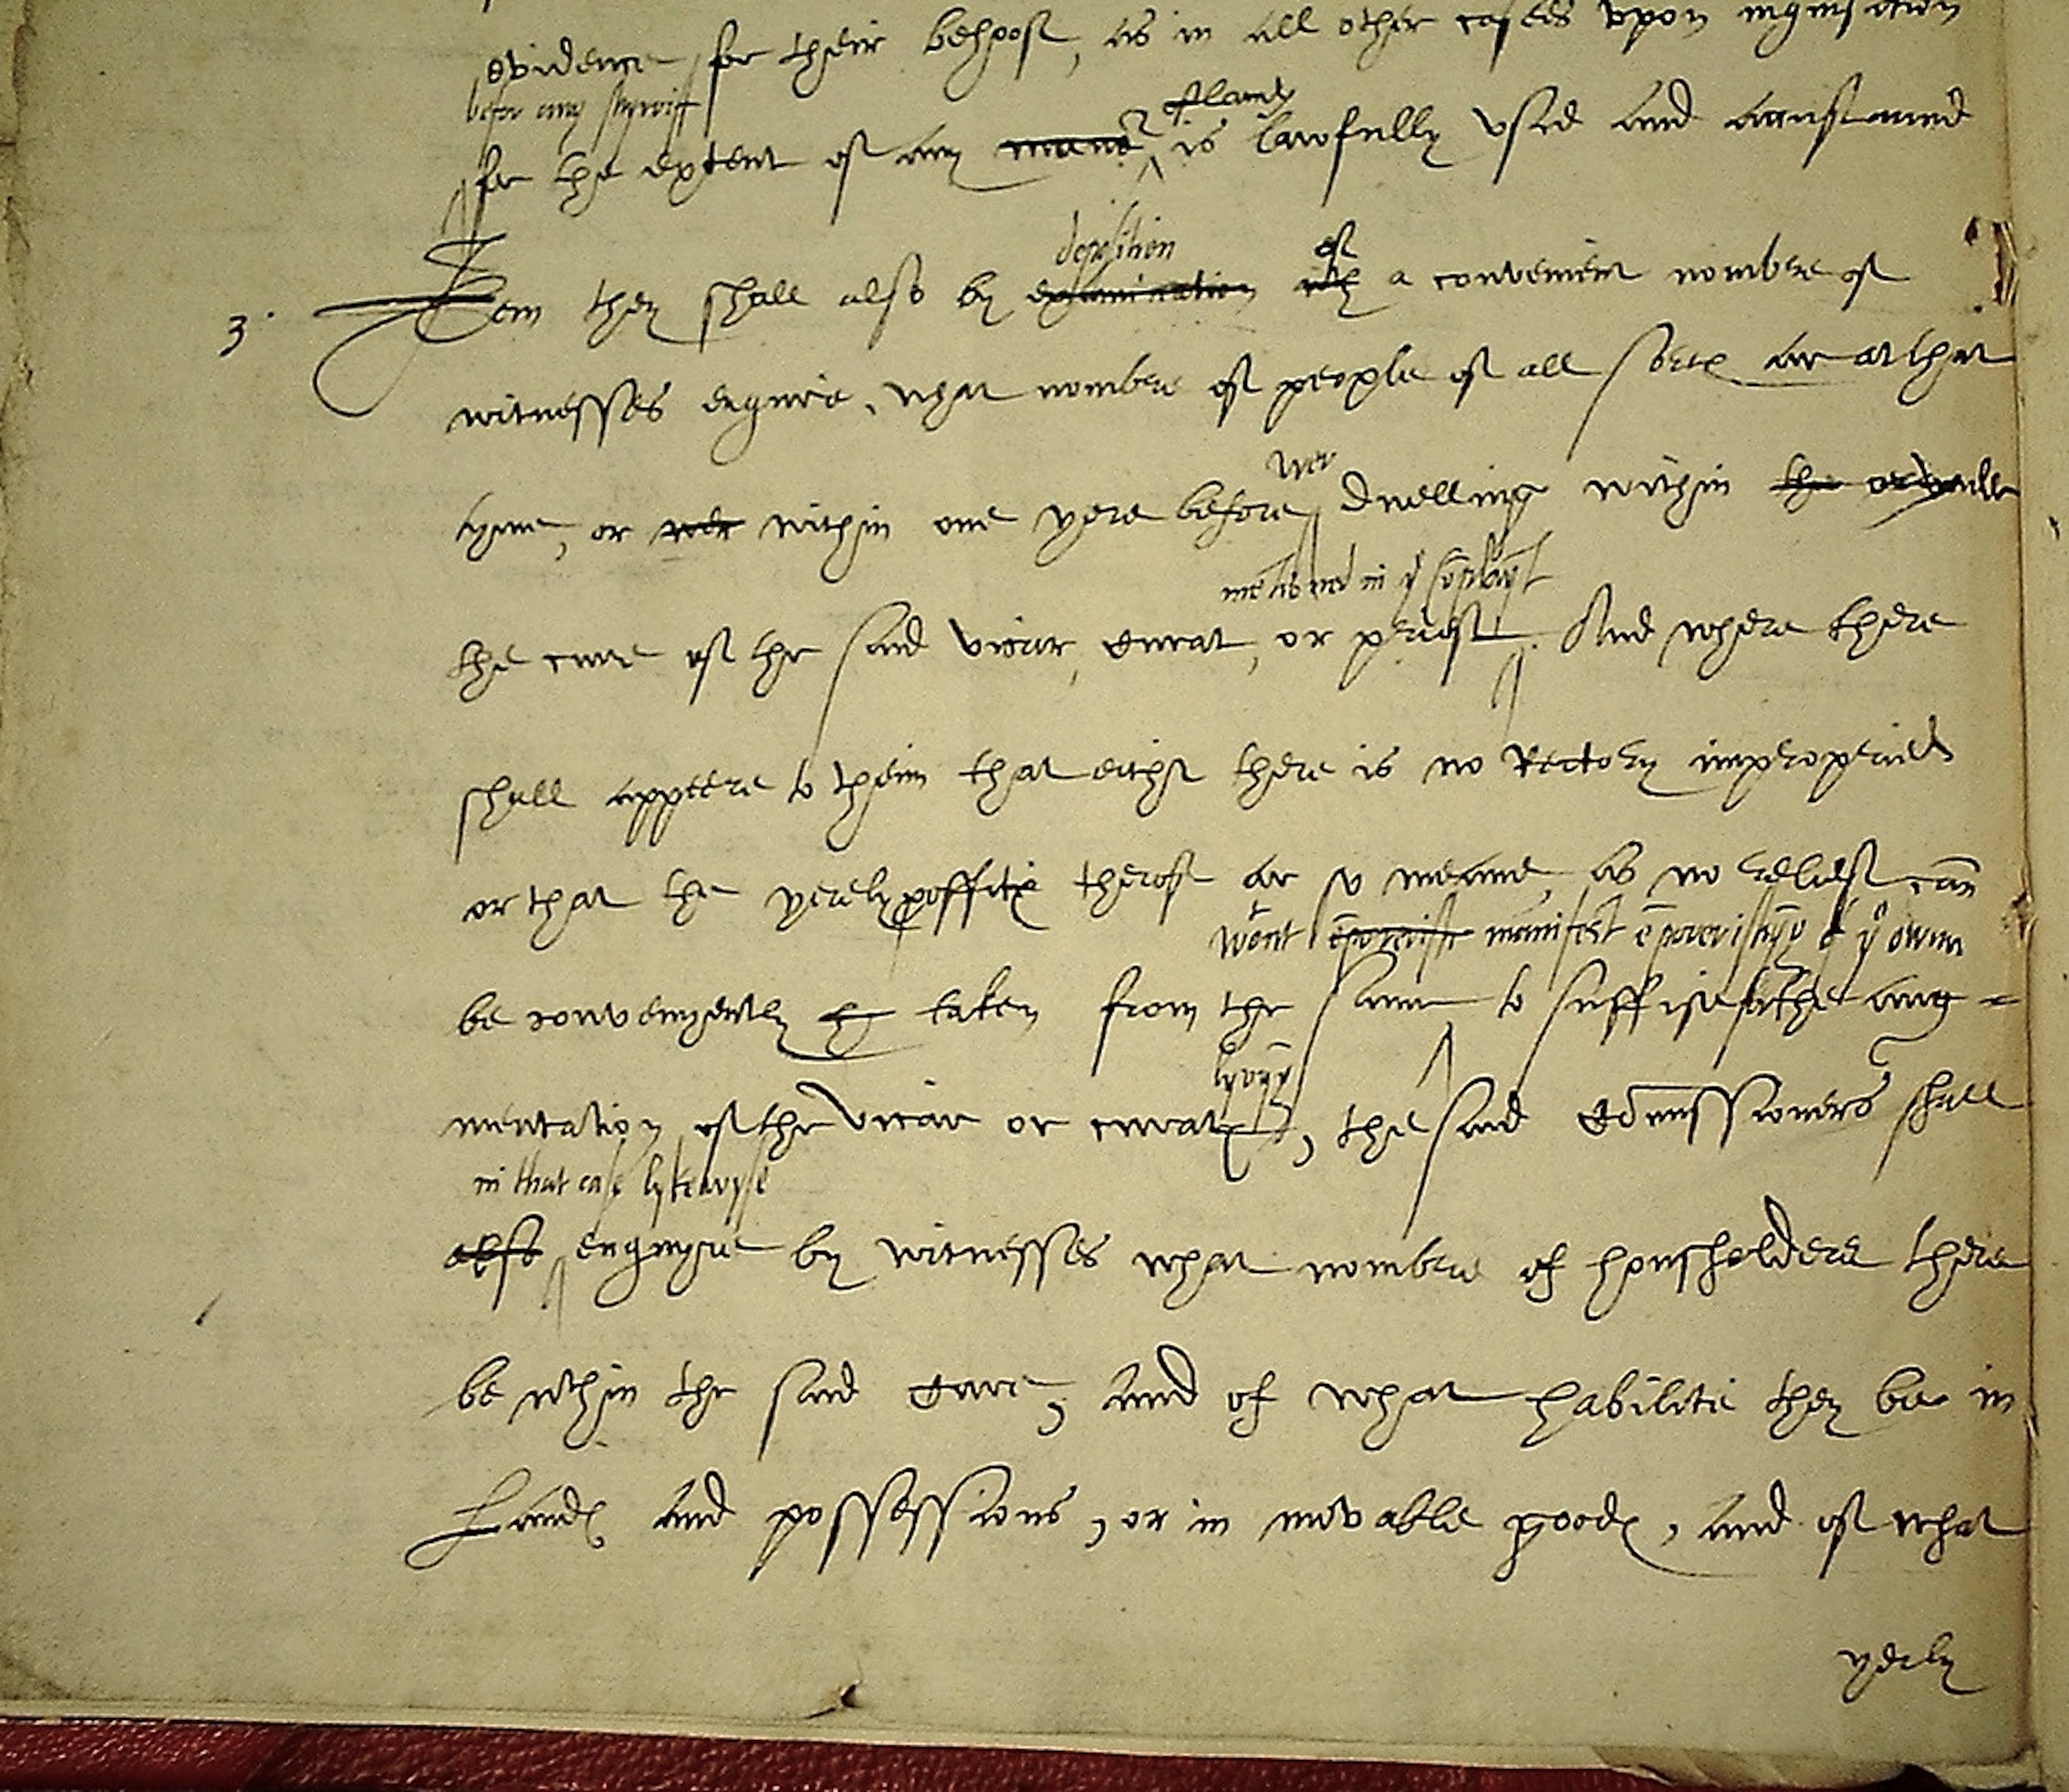 evidence for their behoof, as in all other cases vpon inquisition
befor any shyreff
of landes
for the extent of any is lawfully vsed and accustumed
deposition of
3. Item they shall also by examination with a convenient nombre of
witnesses enquire, what nombre of people of all sortes ar at that
wer
tyme, or wer within one yere before dwelling within the
mētioned in yͤ cōplaynt
the cure of the said vicar, Curat, or priest. And where there
shall appeere to theim that either there is no Rectory impropried
or that the yerely proffites therof ar so meane, as no relief can
wᵗout manifest ēpoverishyng of yͤ ownr
be convenyently taken from the same to suffise for the aug=
lyvyng
mentation of the vicar or curates, the said Cōmissioners shall
in that case lykewyse
also enquyre by witnesses what nombre of housholders there
be wᵗhin the said Cure, and of what habilitie they be in
Landes and possessions, or in movable goodes, and of what
yerly